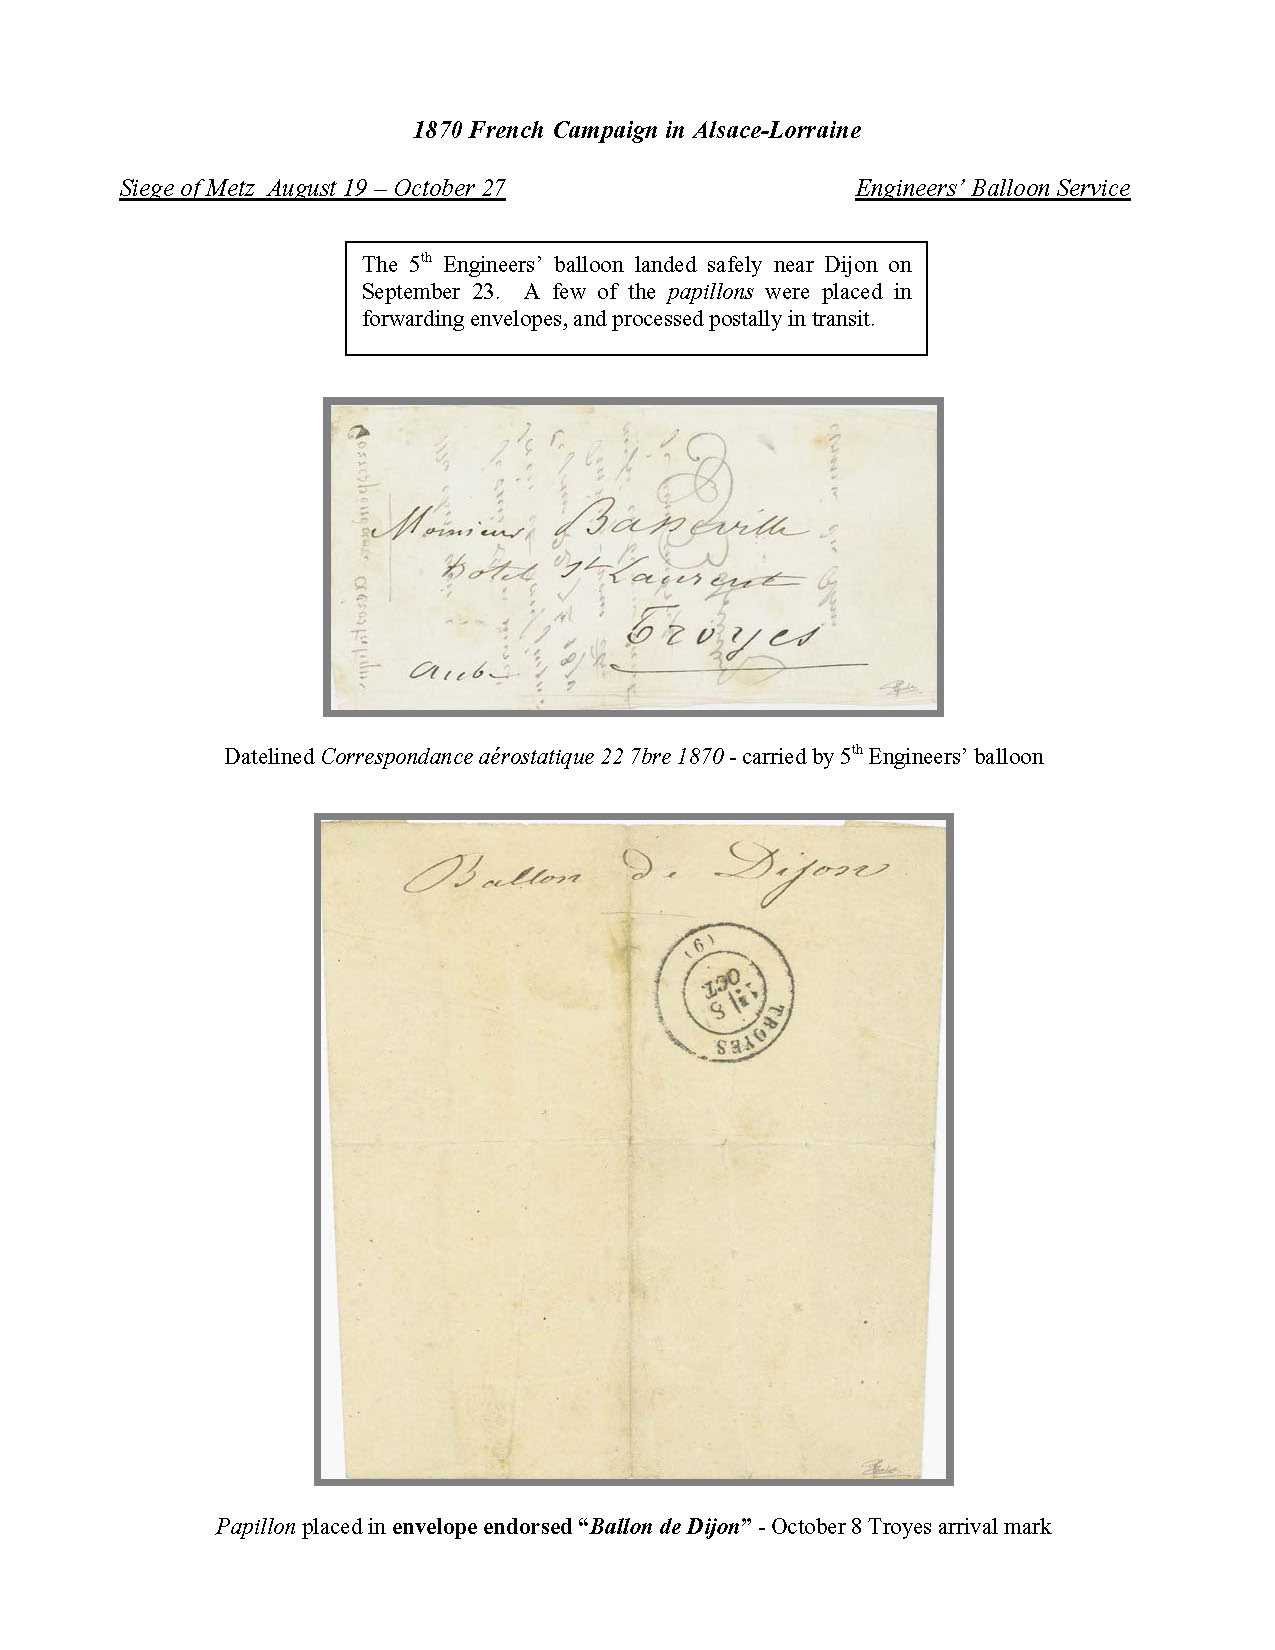 1870 French Campaign in Alsace-Lorraine
Siege of Metz August 19 – October 27
Engineers’ Balloon Service
The 5th Engineers’ balloon landed safely near Dijon on
September 23. A few of the papillons were placed in
forwarding envelopes, and processed postally in transit.
Correspondance aérostatique
Monsieur Basseville
Hotel St Laurent
Troyes
Aube
Datelined Correspondance aérostatique 22 7bre 1870 - carried by 5th Engineers’ balloon
Ballon de Dijon
(6)
OCT.
8
TROYES
Papillon placed in envelope endorsed “Ballon de Dijon” - October 8 Troyes arrival mark